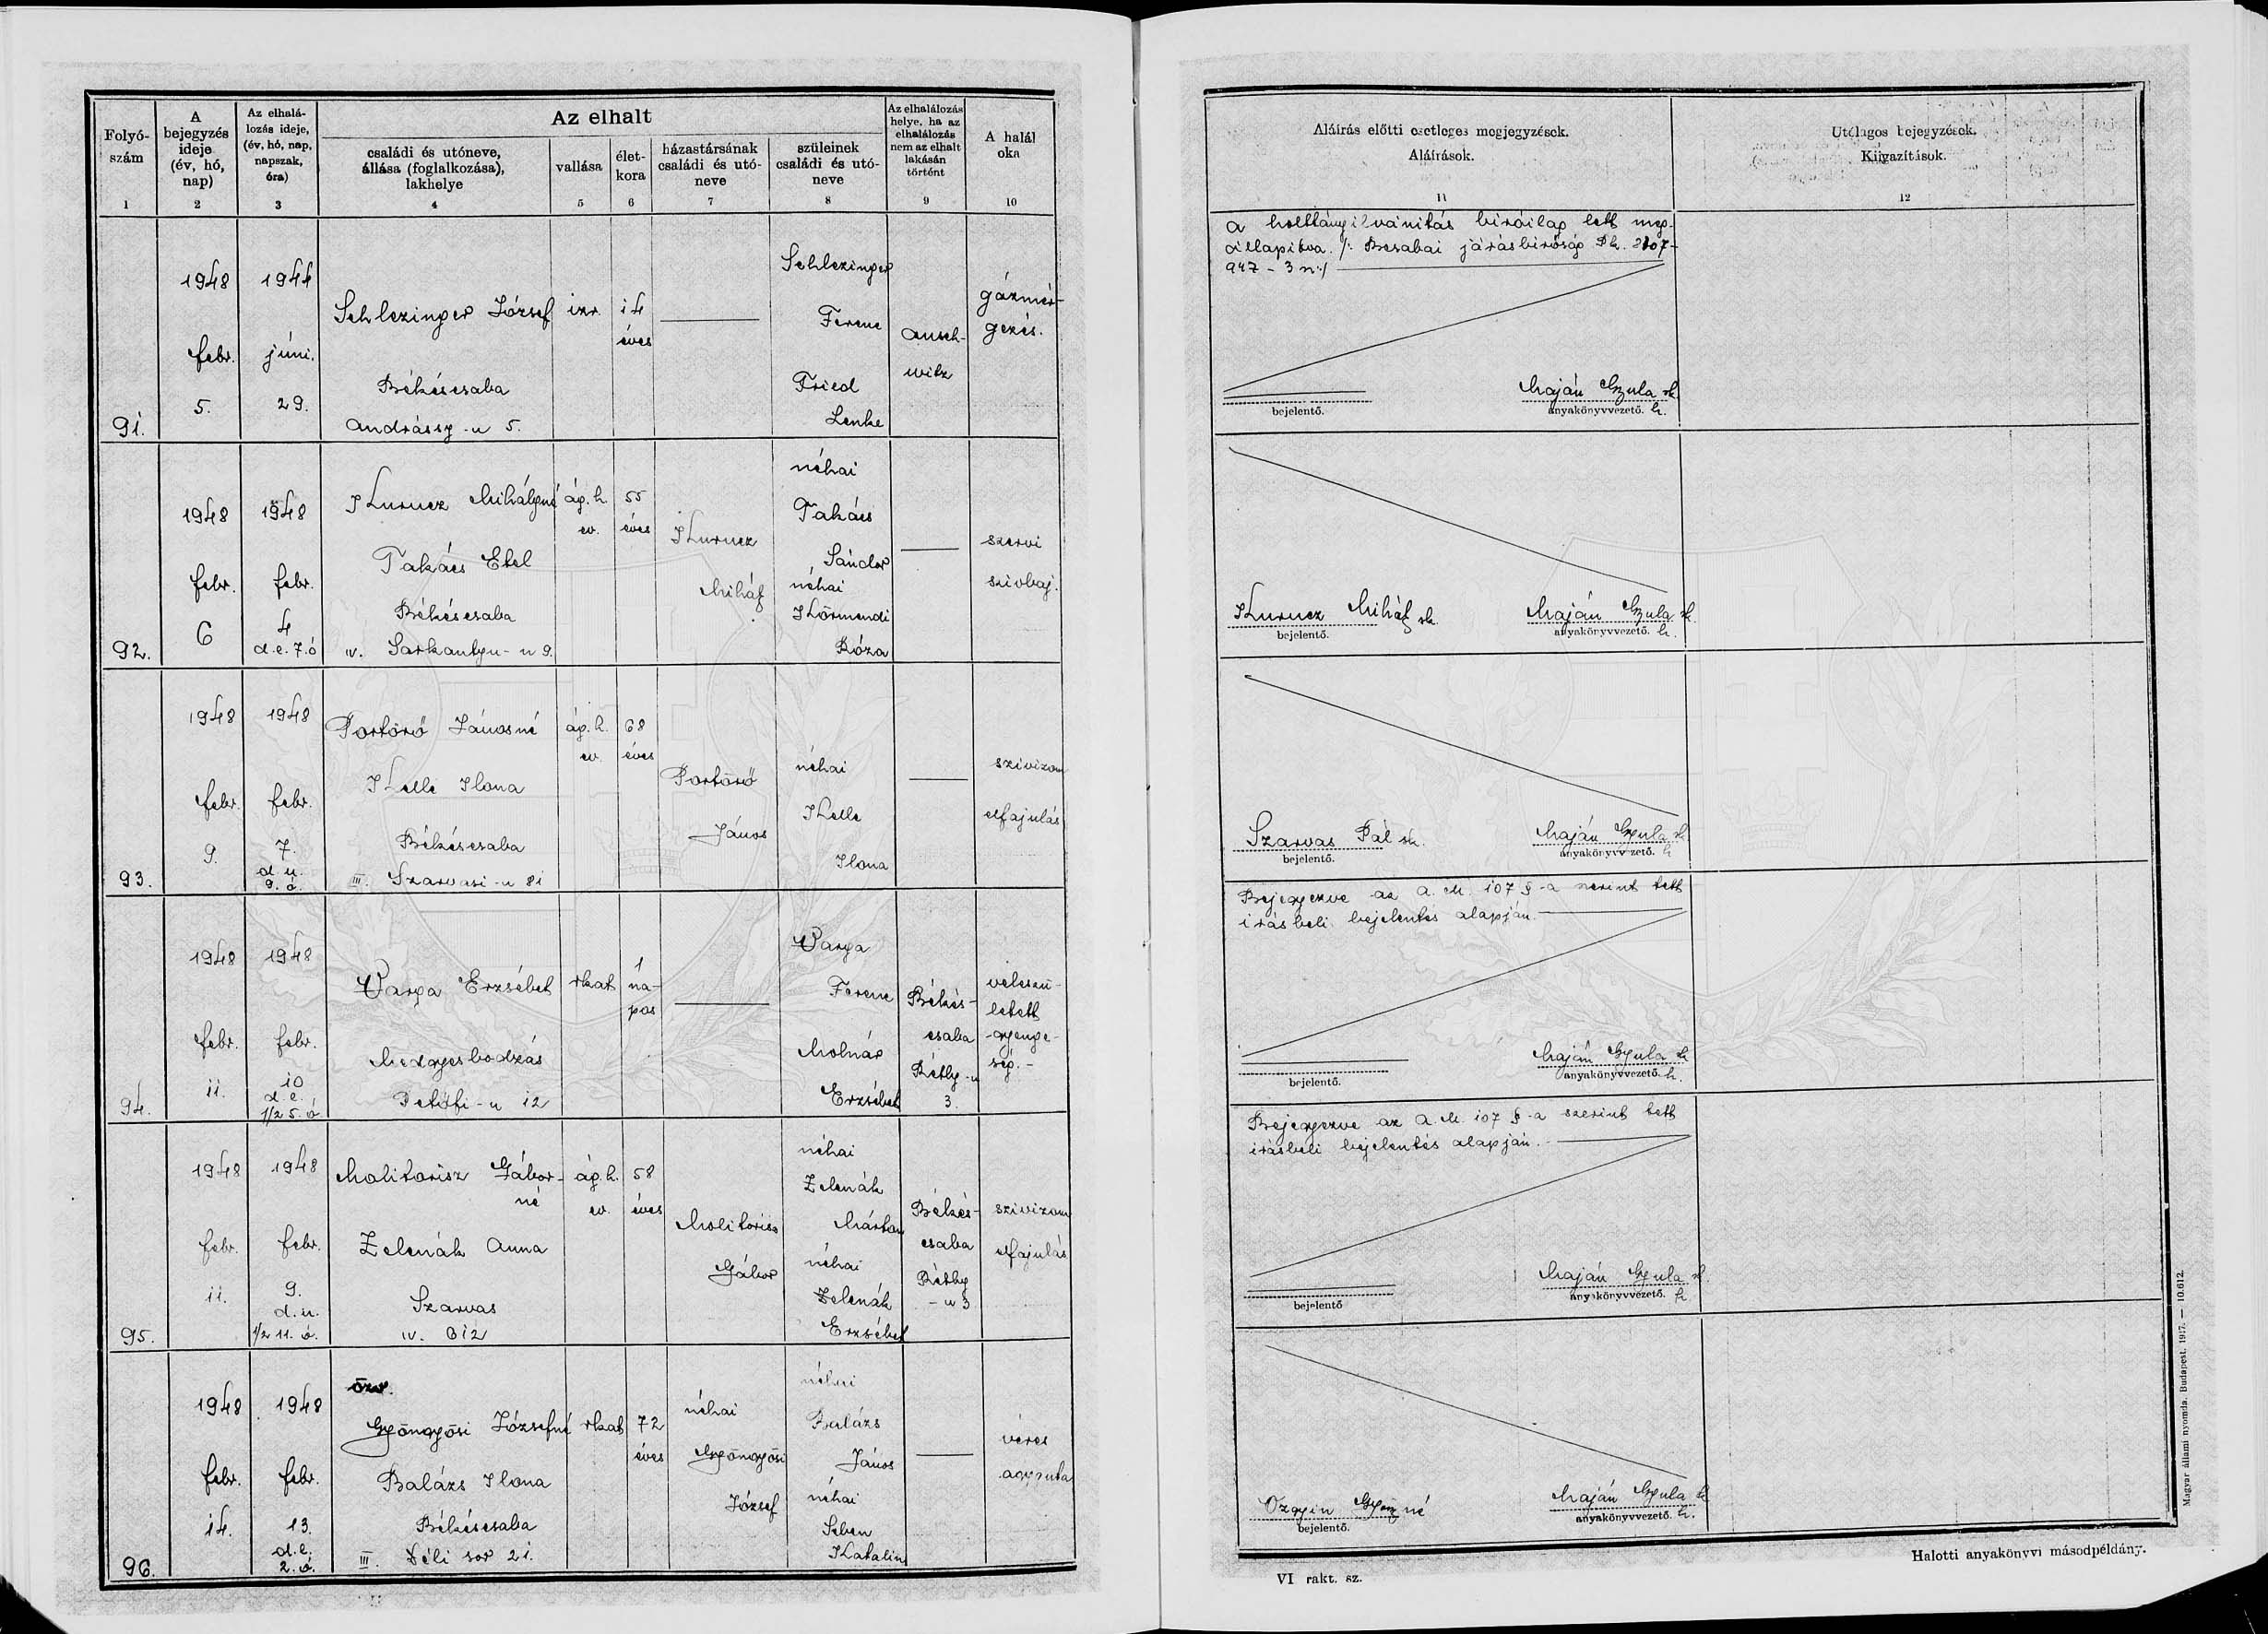 Folyó-
szám
A
bejegyzés
ideje
(év, hó,
nap)
Az elhalá-
lozás ideje,
(év, hó, nap,
napszak,
óra)
Az elhalt
családi és utóneve,
állása (foglalkozása),
lakhelye
vallása
élet-
kora
házastársának
családi és utó-
neve
szüleinek
családi és utó-
neve
Az elhalálozás
helye, ha az
elhalálozás
nem az elhalt
lakásán
történt
A halál
oka
1 2 3 4 5 6 7 8 9 10
91.
1948
febr.
5.
1944
júni.
29.
Schlezinger József
Békéscsaba
Andrássy-u 5.
izr.
14
éves
Schlezinger
Ferenc
Fried
Lenke
Ausch-
witz
gázmér-
gezés.
92.
1948
febr.
6
1948
febr.
4
d.e. 7.ó
Kurucz Mihályné
Takács Etel
Békéscsaba
IV. Sarkantyu-u 9.
ág. h.
ev.
55
éves
Kurucz
Mihály
néhai
Takács
Sándor
néhai
Körmendi
Róza
szervi
szivbaj.
93.
1948
febr.
9.
1948
febr.
7.
d.u.
9. ó.
Portörő Jánosné
Kelle Ilona
Békéscsaba
III. Szarvasi-u 81
ág. h.
ev.
68
éves
Portörő
János
néhai
Kelle
Ilona
szivizom
elfajulás
94.
1948
febr.
11.
1948
febr.
10
d.e.
1/2 5. ó
Varga Erzsébet
Medgyesbodzás
Petőfi-u 12
rkat
1
na-
pos
Varga
Ferenc
Molnár
Erzsébet
Békés-
csaba
Réthy-u
3.
veleszü-
letett
gyenge-
ség.-
95.
1948
febr.
11.
1948
febr.
9.
d.u.
1/2 11. ó.
Molitorisz Gábor-
né
Zelenák Anna
Szarvas
IV. 612
ág. h.
ev.
58
éves
Molitorisz
Gábor
néhai
Zelenák
Márton
néhai
Zelenák
Erzsébet
Békés-
csaba
Réthy
-u 3
szivizom
elfajulás
96.
1948
febr.
14.
1948
febr.
13.
d.e.
2. ó.
özv.
Gyöngyösi Józsefné
Balázs Ilona
Békéscsaba
III. Déli sor 21.
rkat
72
éves
néhai
Gyöngyösi
József
néhai
Balázs
János
néhai
Seben
Katalin
véres
agyguta
Aláírás előtti esetleges megjegyzések.
Aláírások.
11
Utólagos bejegyzések.
Kiigazítások.
12
A holttányilvánitás biróilag lett meg-
állapitva. /: Bcsabai járásbiróság Pk. 2107-
947-3 n:/
bejelentő.
Maján Gyula sk.
anyakönyvvezető. h.
Kurucz Mihály sk.
bejelentő.
Maján Gyula sk.
anyakönyvvezető. h.
Szarvas Pál sk.
bejelentő.
Maján Gyula sk
anyakönyvvezető. h
Bejegyezve az A. M. 107 §-a szerint tett
irásbeli bejelentés alapján.
bejelentő.
Maján Gyula sk
anyakönyvvezető. h.
Bejegyezve az A. M. 107 §-a szerint tett
irásbeli bejelentés alapján.
bejelentő
Maján Gyula sk.
anyakönyvvezető. h
Ozgyin Györgyné
bejelentő.
Maján Gyula sk
anyakönyvvezető. h.
VI rakt. sz.
Halotti anyakönyvi másodpéldány.
Magyar állami nyomda. Budapest. 1947. — 10.612.